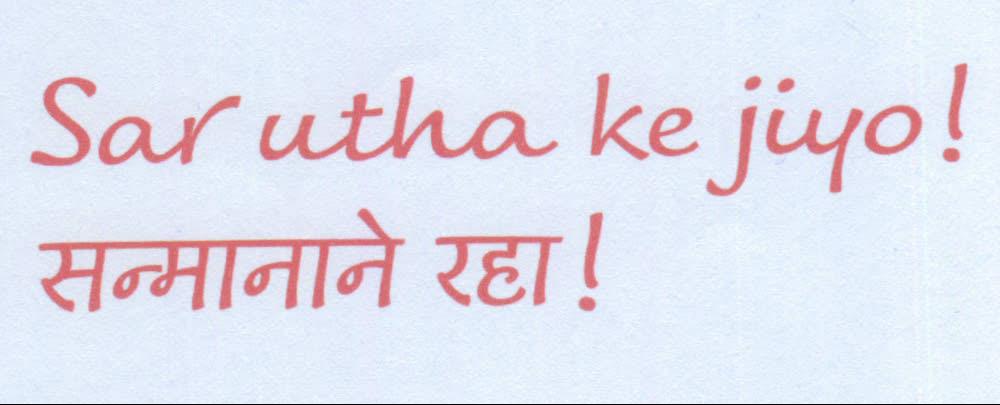 Sar utha ke jiyo!
सन्मानाने रहा!